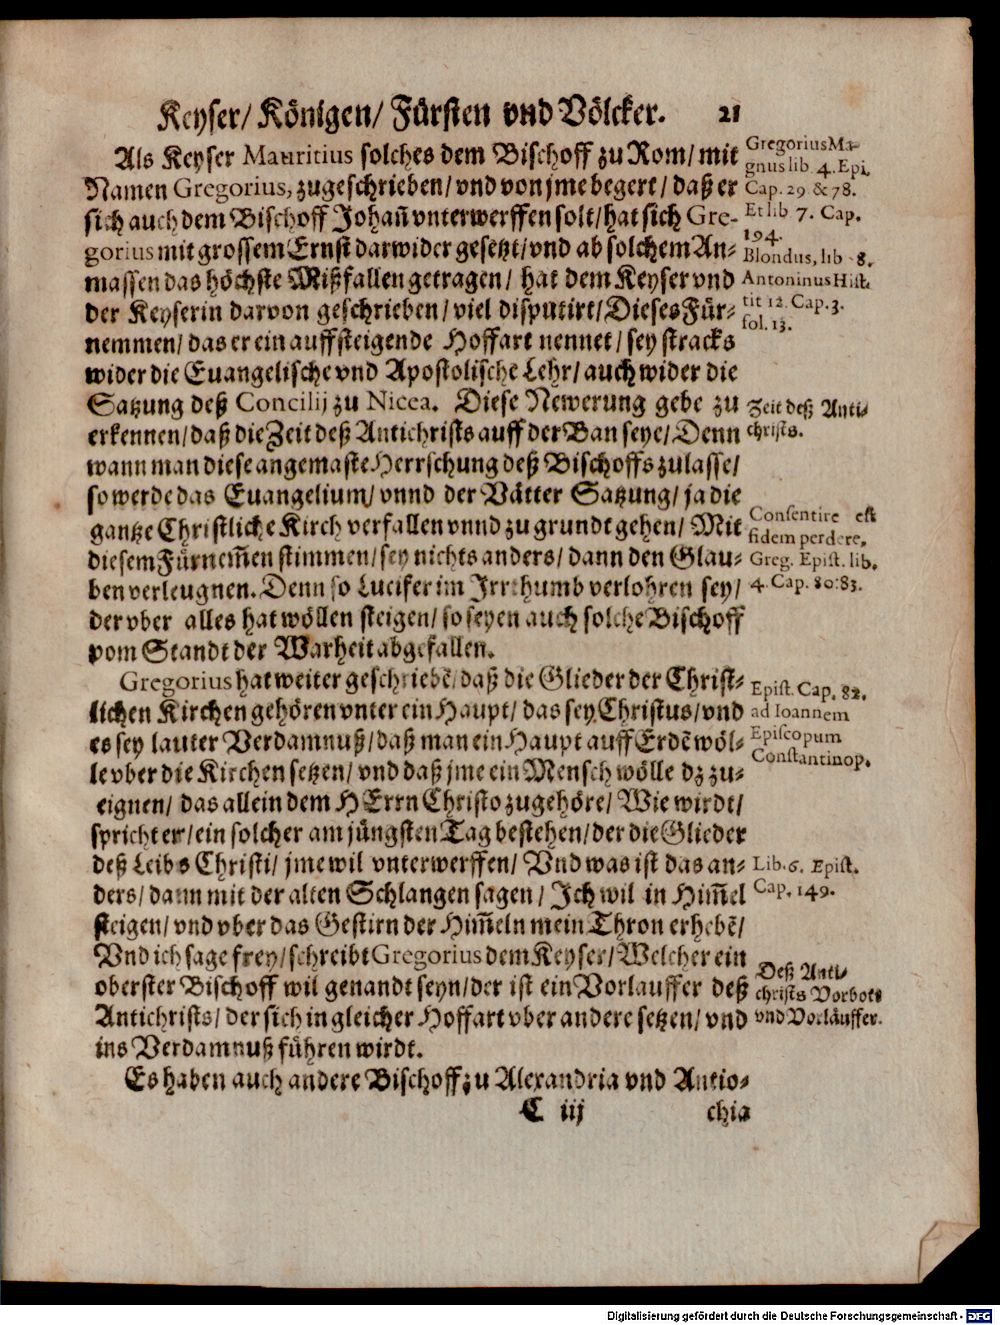 Keyser/ Königen/ Fürsten vnd Völcker. 21
Als Keyser Mauritius solches dem Bischoff zu Rom/ mit
Namen Gregorius, zugeschrieben/ vnd von jme begert/ daß er
sich auch dem Bischoff Johañ vnterwerffen solt/ hat sich Gre-
gorius mit grossem Ernst darwider gesetzt/ vnd ab solchem An-
massen das höchste Mißfallen getragen/ hat dem Keyser vnd
der Keyserin darvon geschrieben/ viel disputirt/ Dieses Für-
nemmen/ das er ein auffsteigende Hoffart nennet/ sey stracks
wider die Euangelische vnd Apostolische Lehr/ auch wider die
Satzung deß Concilij zu Nicea. Diese Newerung gebe zu
erkennen/ daß die Zeit deß Antichrists auff der Ban seye/ Denn
wann man diese angemaste Herrschung deß Bischoffs zulasse/
so werde das Euangelium/ vnnd der Vätter Satzung/ ja die
gantze Christliche Kirch verfallen vnnd zu grundt gehen/ Mit
diesem Fürnem̃en stimmen/ sey nichts anders/ dann den Glau-
ben verleugnen. Denn so Lucifer im Irrthumb verlohren sey/
der vber alles hat wöllen steigen/ so seyen auch solche Bischoff
vom Standt der Warheit abgefallen.
Gregorius hat weiter geschriebẽ/ daß die Glieder der Christ-
lichen Kirchen gehören vnter ein Haupt/ das sey Christus/ vnd
es sey lauter Verdamnuß/ daß man ein Haupt auff Erdẽ wöl-
le vber die Kirchen setzen/ vnd daß jme ein Mensch wölle dz zu-
eignen/ das allein dem HErrn Christo zugehöre/ Wie wirdt/
spricht er/ ein solcher am jüngsten Tag bestehen/ der die Glieder
deß Leibs Christi/ jme wil vnterwerffen/ Vnd was ist das an-
ders/ dann mit der alten Schlangen sagen/ Ich wil in Him̃el
steigen/ vnd vber das Gestirn der Him̃eln mein Thron erhebẽ/
Vnd ich sage frey/ schreibt Gregorius dem Keyser/ Welcher ein
oberster Bischoff wil genandt seyn/ der ist ein Vorlauffer deß
Antichrists/ der sich in gleicher Hoffart vber andere setzen/ vnd
ins Verdamnuß führen wirdt.
Es haben auch andere Bischoff zu Alexandria vnd Antio-
C iij chia
Gregorius Ma-
gnus lib. 4. Epi.
Cap. 29 & 78.
Et lib 7. Cap.
194.
Blondus, lib. 8.
Antoninus Hist.
tit 12. Cap. 3.
fol. 13.
Zeit deß Anti-
christs.
Consentire est
fidem perdere,
Greg. Epist. lib.
4. Cap. 80. 83.
Epist. Cap. 82.
ad Ioannem
Episcopum
Constantinop.
Lib. 6. Epist.
Cap. 149.
Deß Anti-
christs Vorbott
vnd Vorläuffer.
Digitalisierung gefördert durch die Deutsche Forschungsgemeinschaft - DFG